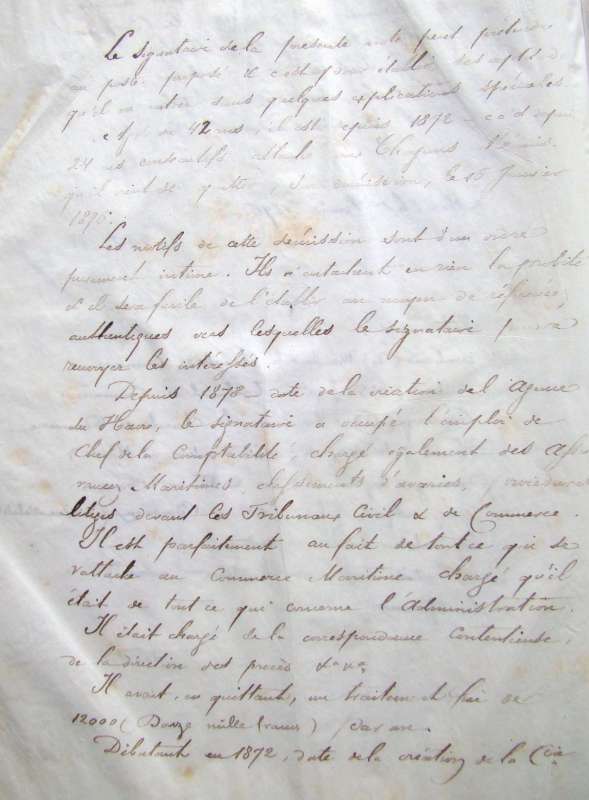 Le signataire de la presente note peut prétendre
au poste proposé il est pour établir ses
qu'il va entrer dans quelques explications spéciales
Agé de 42 ans, il est depuis 1872 -
24 ans consecutifs attaché aux Chargeurs Réunis
qu'il vient de quitter, démission, le 16 Janvier
1896.
Les motifs de cette démission sont d'un ordre
purement intime. Ils n'entachent en rien la probité
& il sera facile de l'établir au moyen de références,
authentiques vers lesquelles le signataire pourra
renvoyer les intéressés.
Depuis 1878 date de la création de l'Agence
du Havre, le signataire a occupé l'emploi de
Chef de la Comptabilité, chargé également des Assu
rances Maritimes, règlements d'avaries, procédures
litiges devant les Tribunaux Civil & de Commerce.
Il est parfaitement au fait de tout ce qui se
rattache au Commerce Maritime chargé qu'il
était de tout ce qui concerne l'Administration.
Il était chargé de la correspondance Contentieuse,
de la direction des procès &a &a
Il avait, en quittant, un traitement fixe de
12000 (Douze mille francs) par an.
Débutant en 1872, date de la création de la Cie